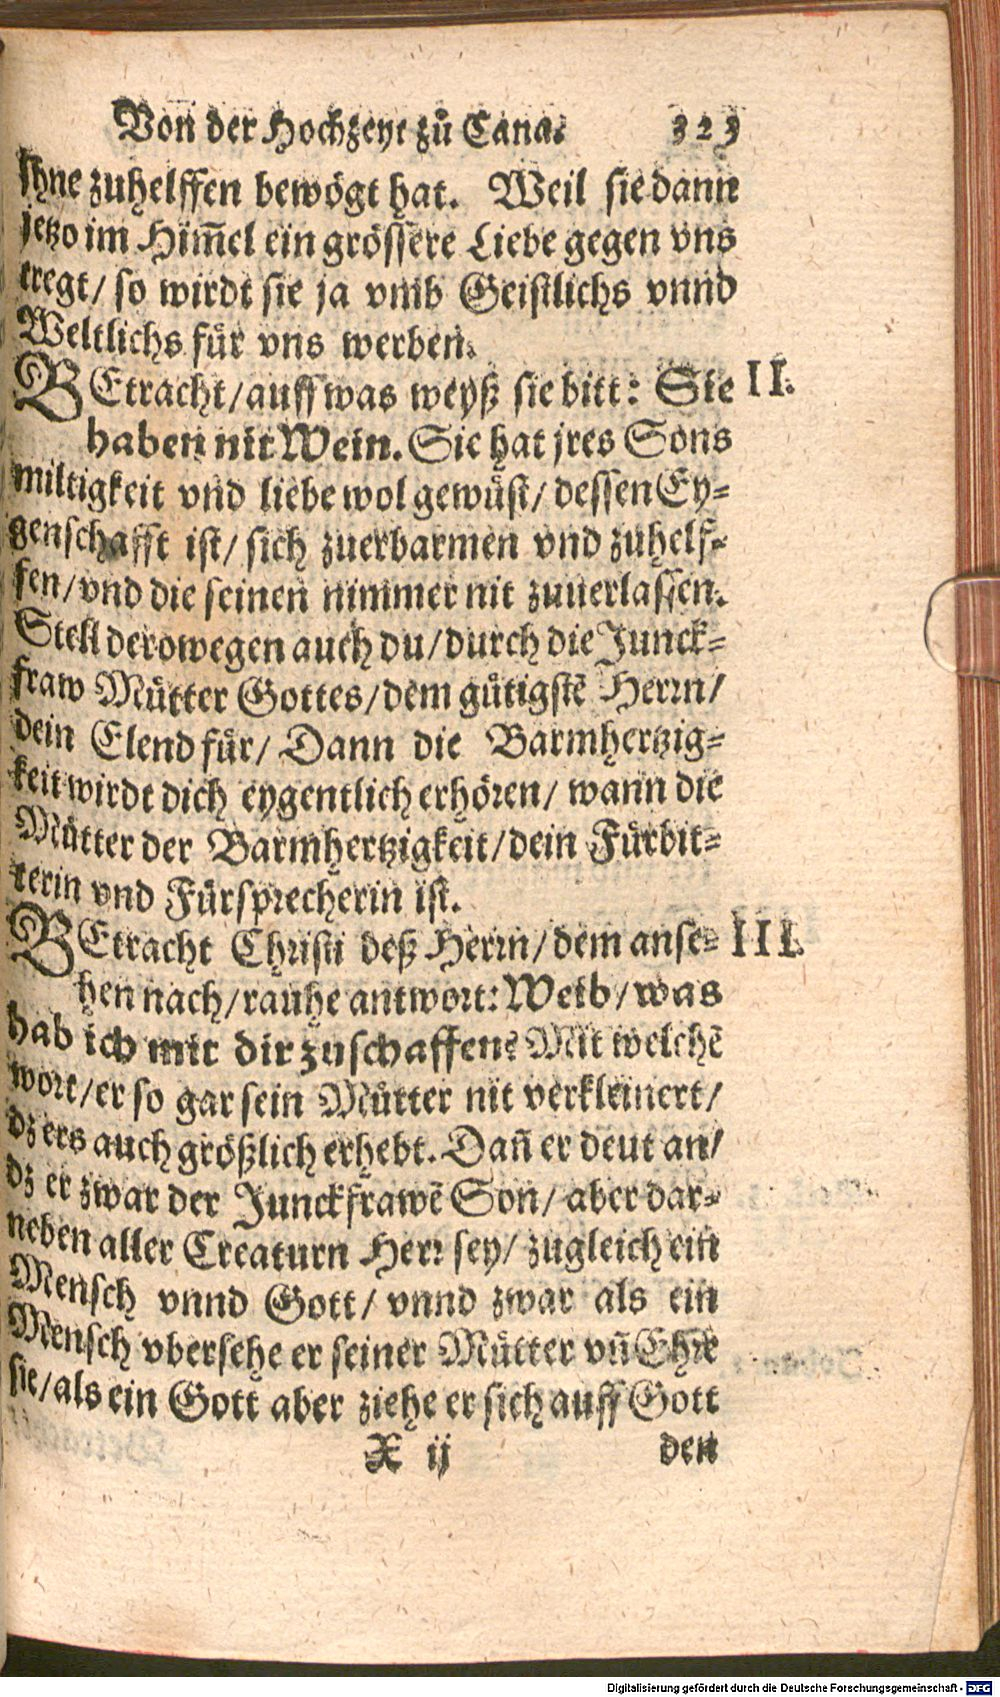 Von der Hochzeyt zů Cana. 323
Ihne zuhelffen bewögt hat. Weil sie dann
jetzo im Him̃el ein grössere Liebe gegen vns
tregt / so wirdt sie ja vmb Geistlichs vnnd
Weltlichs für vns werben.
BEtracht / auff was weyß sie bitt: Sie II.
haben nit Wein. Sie hat jres Sons
miltigkeit vnd liebe wol gewüst / dessen Ey=
genschafft ist / sich zuerbarmen vnd zuhelf=
fen / vnd die seinen nimmer nit zuuerlassen.
Stell derowegen auch du / durch die Junck=
fraw Můtter Gottes / dem gütigstē Herrn /
dein Elend für / Dann die Barmhertzig=
keit wirdt dich eygentlich erhören / wann die
Můtter der Barmhertzigkeit / dein Fürbit=
terin vnd Fürsprecherin ist.
BEtracht Christi deß Herrn / dem anse= III.
hen nach / rauhe antwort: Weib / was
hab ich mit dir zuschaffen? Mit welchē
wort / er so gar sein Můtter nit verkleinert /
dz ers auch größlich erhebt. Dañ er deut an /
dz er zwar der Junckfrawē Son / aber dar=
neben aller Creaturn Herr sey / zugleich ein
Mensch vnnd Gott / vnnd zwar als ein
Mensch vbersehe er seiner Můtter vñ Ehre
sie / als ein Gott aber ziehe er sich auff Gott
X ij den
Digitalisierung gefördert durch die Deutsche Forschungsgemeinschaft - DFG